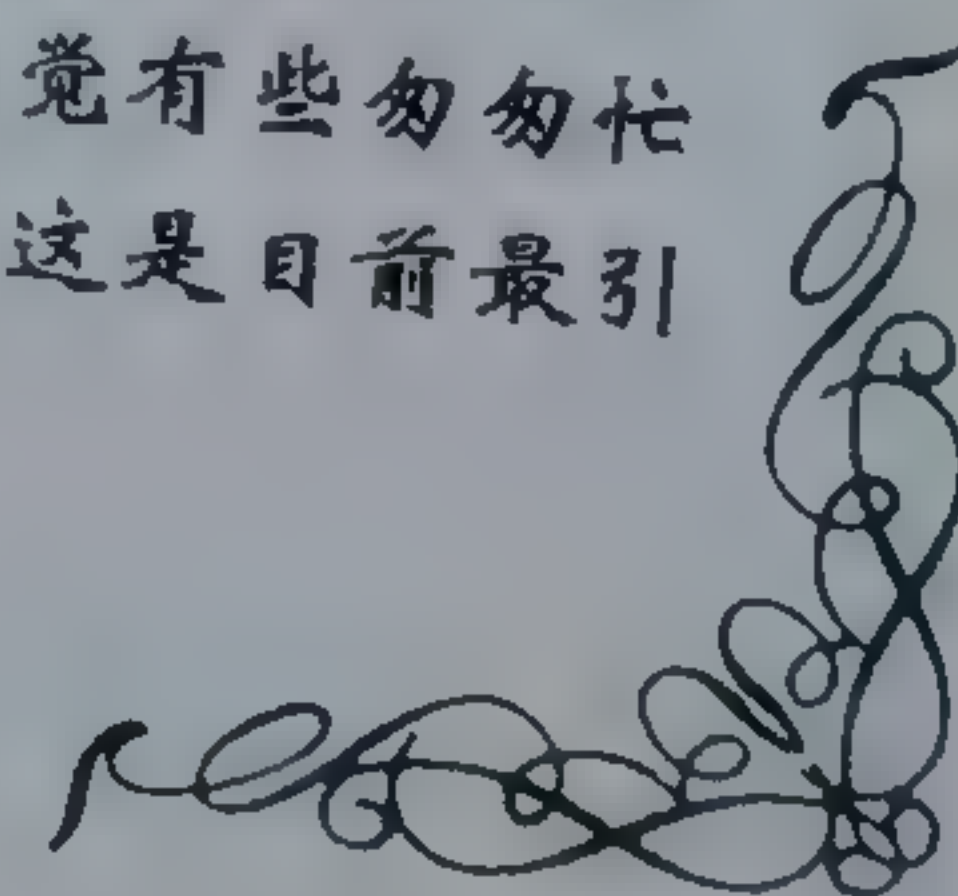 觉有些匆匆忙
这是目前最引